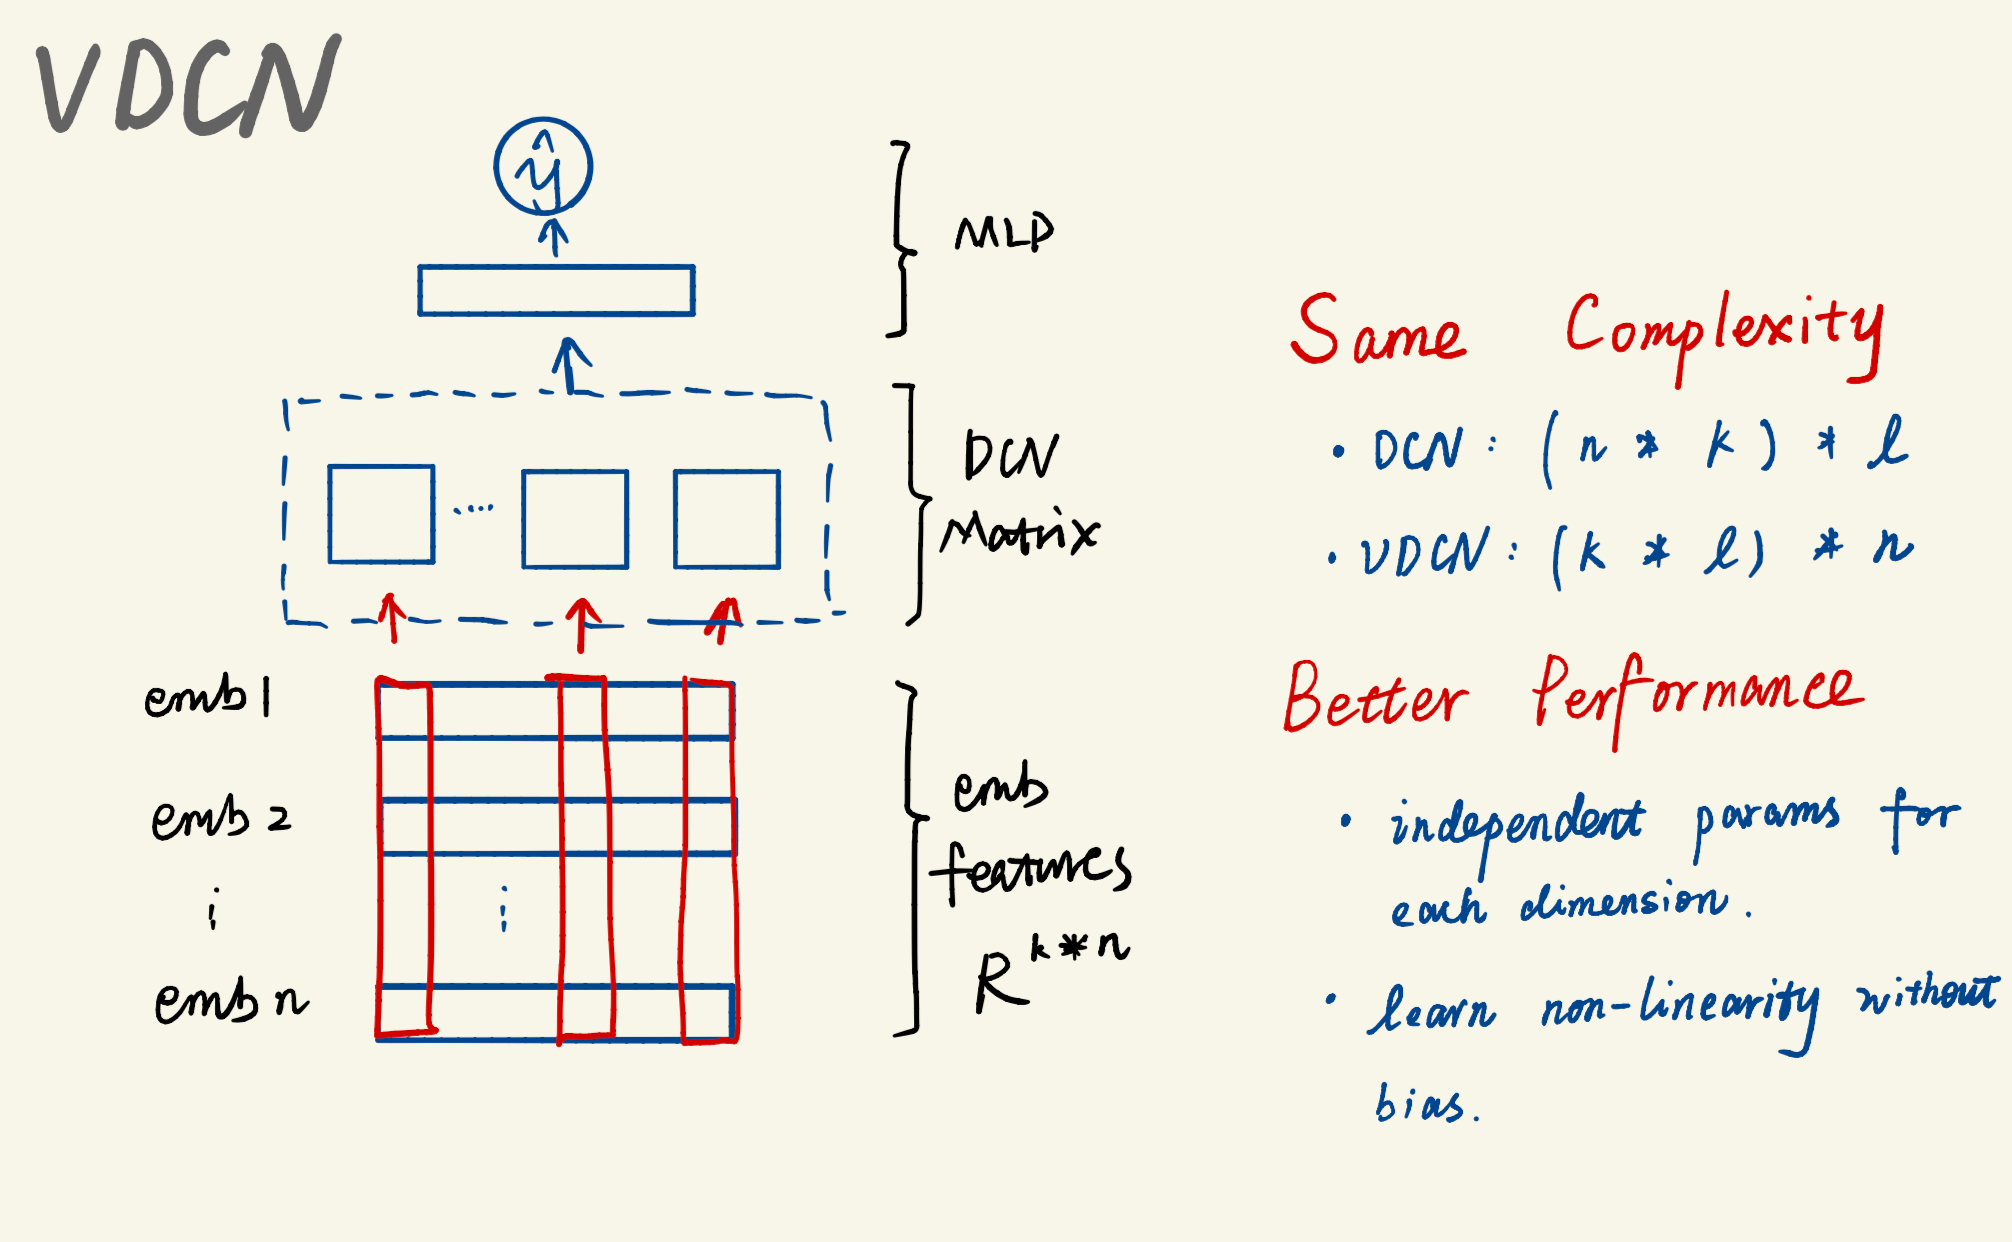 VDCN
ŷ
MLP
DCN
Matrix
emb 1
emb 2
⋮
emb n
emb
features
R^{k*n}
Same Complexity
• DCN: (n * k) * l
• VDCN: (k * l) * n
Better Performance
• independent params for
each dimension.
• learn non-linearity without
bias.